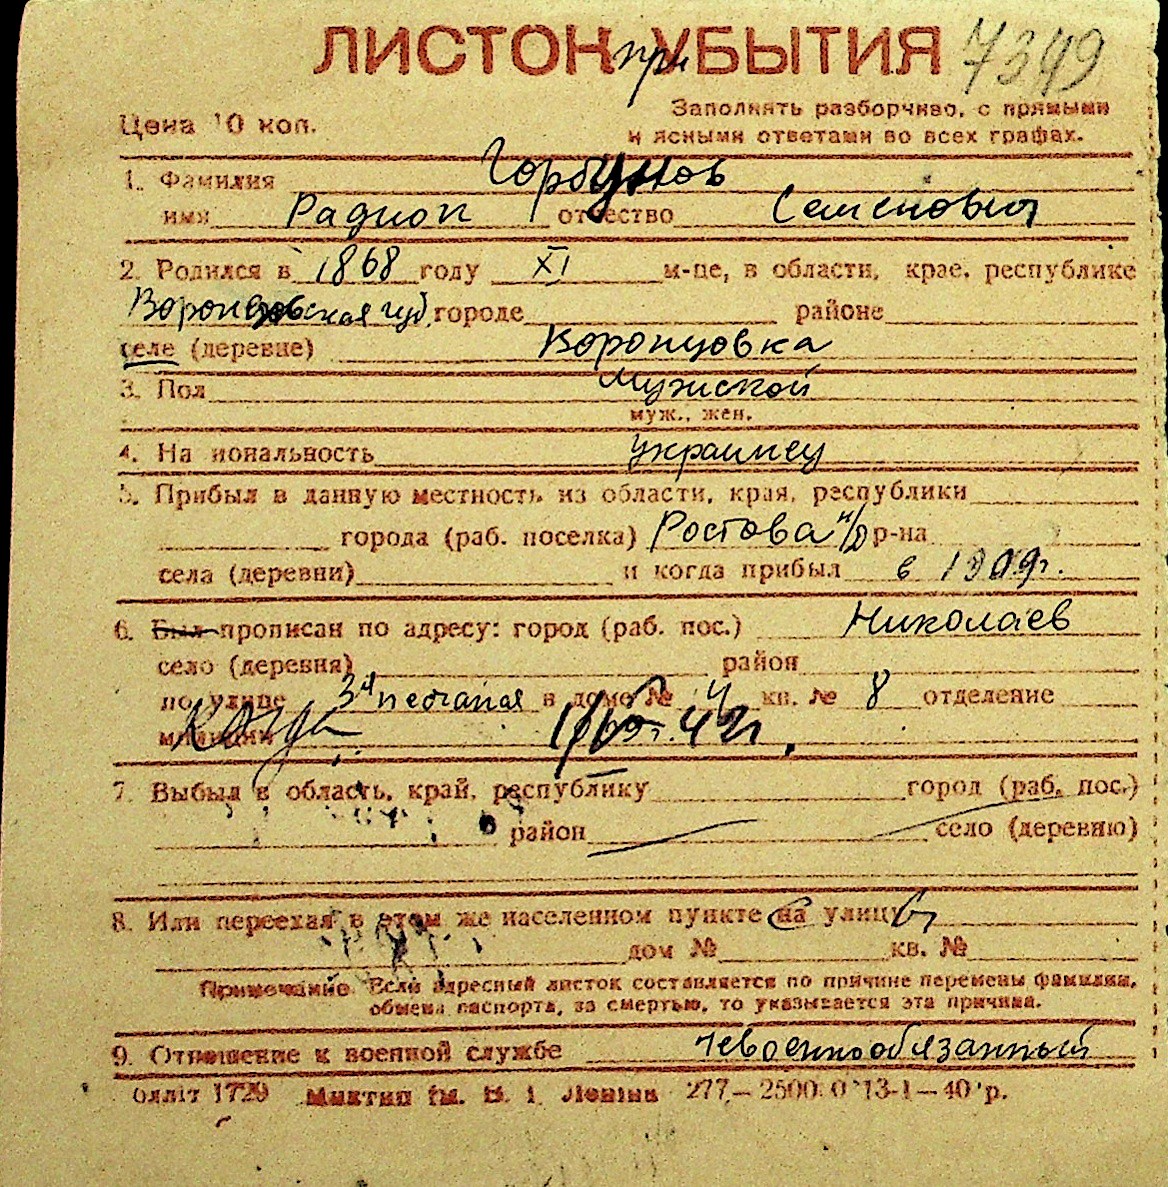 ЛИСТОК при УБЫТИЯ 7349
Цена 10 коп.
Заполнять разборчиво, с прямыми
и ясными ответами во всех графах.
1. Фамилия Горбунов
имя Радион отчество Семенович
2. Родился в 1868 году XI м-це, в области, крае, республике
Воронцовская губ. городе районе
селе (деревне) Воронцовка
3. Пол мужской
муж., жен.
4. На иональность украинец
5. Прибыл в данную местность из области, края, республики
города (раб. поселка) Ростова н/Д р-на
села (деревни) и когда прибыл в 1909г.
6. Был прописан по адресу: город (раб. пос.) Николаев
село (деревня) район
по улице 3я песчаная в доме № 4 кв. № 8 отделение
милиции
7. Выбыл в область, край, республику город (раб. пос.)
район село (деревню)
8. Или переехал в этом же населенном пункте на улицу
дом № кв. №
Примечание. Если адресный листок составляется по причине перемены фамилии,
обмена паспорта, за смертью, то указывается эта причина.
9. Отношение к военной службе невоеннообязанный
блліт 1729 Миктип ім. В. І. Леніна 277—2500 0 13-1—40 р.